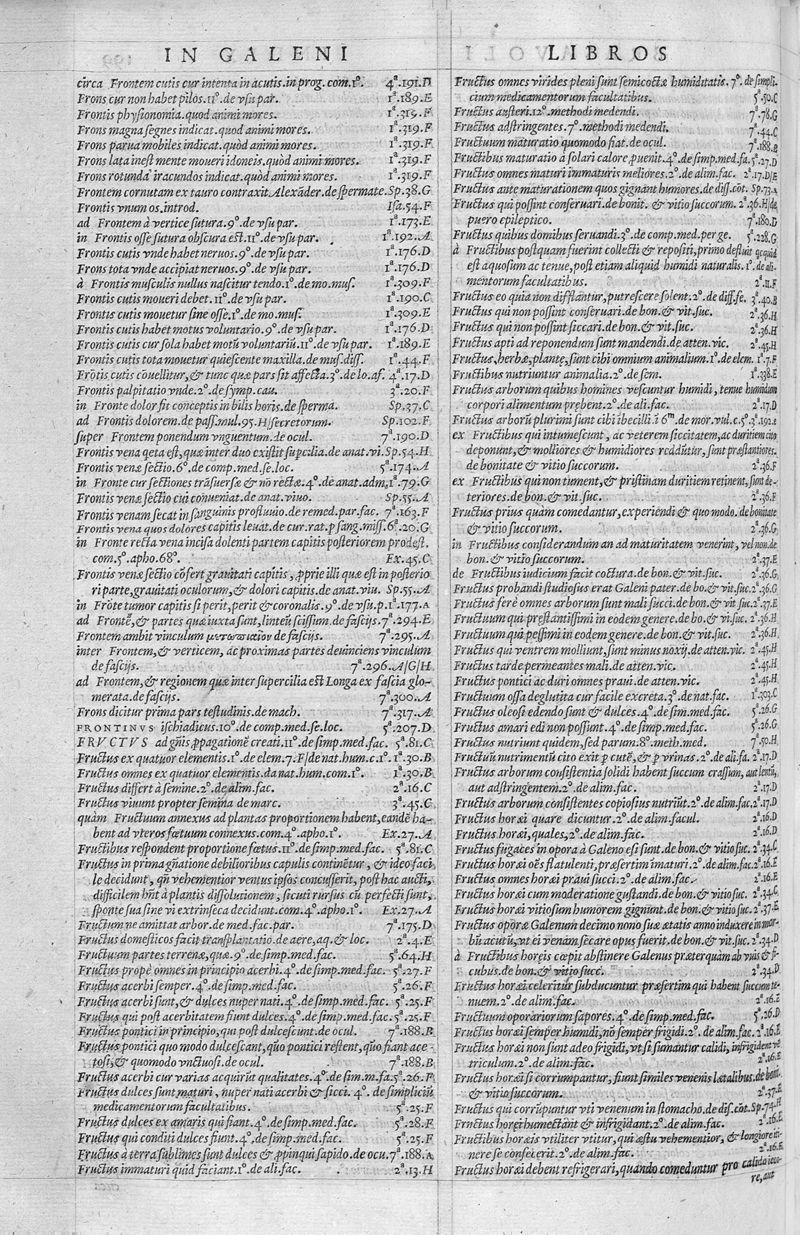 IN GALENI
circa Frontem cutis cur intenta in acutis.in prog. com.1°. 4ª.191.D
Frons cur non habet pilos.11°.de vsu par. 1ª.189.E
Frontis physionomia.quod animi mores. 1ª.319.F
Frons magna segnes indicat.quod animi mores. 1ª.319.F
Frons parua mobiles indicat.quòd animi mores. 1ª.319.F
Frons lata inest mente moueri idoneis.quòd animi mores. 1ª.319.F
Frons rotunda iracundos indicat.quòd animi mores. 1ª.319.F
Frontem cornutam ex tauro contraxit Alexāder.de spermate. Sp.38.G
Frontis vnum os.introd. Isa.54.F
ad Frontem à vertice sutura.9°.de vsu par. 1ª.173.E
in Frontis osse sutura obscura est.11°.de vsu par. 1ª.192.A
Frontis cutis vnde habet neruos.9°.de vsu par. 1ª.176.D
Frons tota vnde accipiat neruos.9°.de vsu par. 1ª.176.D
à Frontis musculis nullus nascitur tendo.1°.de mo.mus. 1ª.309.F
Frontis cutis moueri debet.11°.de vsu par. 1ª.190.C
Frontis cutis mouetur sine osse.1°.de mo.mus. 1ª.309.E
Frontis cutis habet motus voluntario.9°.de vsu par. 1ª.176.D
Frontis cutis cur sola habet motū voluntariū.11°.de vsu par. 1ª.189.E
Frontis cutis tota mouetur quiescente maxilla.de mus.diss. 1ª.44.F
Frōtis cutis cōuellitur,& tunc quæ pars sit affecta.3°.de lo.af. 4ª.17.D
Frontis palpitatio vnde.2°.de symp.cau. 3ª.20.F
in Fronte dolor fit conceptis in bilis horis.de sperma. Sp.37.C
ad Frontis dolorem.de pass.mul.95.H/secretorum. Sp.102.F
super Frontem ponendum vnguentum.de ocul. 7ª.190.D
Frontis vena qeta est, quæ inter duo existit supcilia.de anat.vi. Sp.54.H
Frontis venæ sectio.6°.de comp.med.se.loc. 5ª.174.A
in Fronte cur sectiones trāsuersæ & nō rectæ.4°.de anat.adm, 1ª.79.G
Frontis venæ sectio cui conueniat.de anat.viuo. Sp.55.A
Frontis venam secat in sanguinis profluuio.de remed.par.fac. 7ª.163.F
Frontis vena quos dolores capitis leuat.de cur.rat.p sang.miss. 6ª.20.G
in Fronte recta vena incisa dolenti partem capitis posteriorem prodest.
com.5°.apho.68°. Ex.45.C
Frontis venæ sectio cōfert grauitati capitis, pprie illi quæ est in posterio
ri parte,grauitati oculorum,& dolori capitis.de anat.viu. Sp.55.A
in Frōte tumor capitis si perit,perit & coronalis.9°.de vsu.p. 1ª.177.A
ad Frontē,& partes quæ iuxta sunt,linteū scissum.de fascijs. 7ª.294.E
Frontem ambit vinculum de fascijs. 7ª.295.A
inter Frontem,& verticem, ac proximas partes deuinciens vinculum
de fascijs. 7ª.296.A/G/H
ad Frontem,& regionem quæ inter supercilia est Longa ex fascia glo-
merata.de fascijs. 7ª.300.A
Frons dicitur prima pars testudinis.de mach. 7ª.317.A
FRONTINVS ischiadicus.10°.de comp.med.se.loc. 5ª.207.D
FRVCTVS ad gñis ppagationē creati.11°.de simp.med.fac. 5ª.81.C
Fructus ex quatuor elementis.1°.de elem.7.F/de nat.hum.c.1°. 1ª.30.B
Fructus omnes ex quatuor elementis.da nat.hum.com.1°. 1ª.30.B
Fructus differt à semine.2°.de alim.fac. 2ª.16.C
Fructus viuunt propter semina de marc. 3ª.45.C
quàm Fructuum annexus ad plantas proportionem habent,eandē ha-
bent ad vteros fœtuum connexus.com.4°.apho.1°. Ex.27.A
Fructibus respondent proportione fœtus.11°.de simp.med.fac. 5ª.81.C
Fructus in prima gñatione debilioribus capulis continētur, & ideo faci
le decidunt, qñ vehementior ventus ipsos concusserit, post hac aucti,
difficilem hñt à plantis dissolutionem, sicuti rursus cū perfecti sunt,
sponte sua sine vi extrinseca decidunt.com.4°.apho.1°. Ex.27.A
Fructum ne amittat arbor.de med.fac.par. 7ª.175.D
Fructus domesticos facit transplantatio.de aere,aq.& loc. 2ª.4.E
Fructuum partes terrenæ, quæ.9°.de simp.med.fac. 5ª.64.H
Fructus propè omnes in principio acerbi.4°.de simp.med.fac. 5ª.27.F
Fructus acerbi semper.4°.de simp.med.fac. 5ª.26.F
Fructus acerbi sunt,& dulces nuper nati.4°.de simp.med.fac. 5ª.25.F
Fructus qui post acerbitatem fiunt dulces.4°.de simp.med.fac. 5ª.25.F
Fructus pontici in principio,qui post dulcescunt.de ocul. 7ª.188.B
Fructus pontici quo modo dulcescant,quo pontici restent,quo fiant ace-
tosi,& quomodo vnctuosi.de ocul. 7ª.188.B
Fructus acerbi cur varias acquirūt qualitates.4°.de sim.m.fa. 5ª.26.F
Fructus dulces sunt maturi, nuper nati acerbi & sicci. 4°.de simpliciū
medicamentorum facultatibus. 5ª.25.F
Fructus dulces ex amaris qui fiant.4°.de simp.med.fac. 5ª.28.F
Fructus qui conditi dulces fiunt.4°.de simp.med.fac. 5ª.25.F
Fructus à terra sublimes sunt dulces & ppinqui sapido.de ocu. 7ª.188.A
Fructus immaturi quid faciant.1°.de ali.fac. 2ª.13.H
LIBROS
Fructus omnes virides pleni sunt semicoctæ humiditatis. 7°.de simpli-
cium medicamentorum facultatibus. 5ª.50.C
Fructus austeri.12°.methodi medendi. 7ª.78.G
Fructus adstringentes.7°.methodi medendi. 7ª.44.C
Fructuum maturatio quomodo fiat.de ocul. 7ª.188.B
Fructibus maturatio à solari calore puenit.4°.de simp.med.fa. 5ª.27.D
Fructus omnes maturi immaturis meliores.2°.de alim.fac. 2ª.17.D/E
Fructus ante maturationem quos gignant humores.de diss.cōt. Sp.73.A
Fructus qui possint conseruari.de bonit. & vitio succorum. 2ª.36.H/de
puero epileptico. 7ª.180.D
Fructus quibus domibus seruandi.3°.de comp.med.perge. 5ª.228.G
à Fructibus postquam fuerint collecti & repositi,primo defluit qcquid
est aquosum ac tenue,post etiam aliquid humidi naturalis.1°.de ali-
mentorum facultatibus. 2ª.11.F
Fructus eo quia non difflantur,putrescere solent.2°.de diff.fe. 3ª.40.B
Fructus qui non possint conseruari.de bon.& vit.suc. 2ª.36.H
Fructus qui non possint siccari.de bon.& vit.suc. 2ª.36.H
Fructus apti ad reponendum sunt mandendi.de atten.vic. 2ª.45.H
Fructus,herbæ,plantę,sunt cibi omnium animalium.1°.de elem. 1ª.7.F
Fructibus nutriuntur animalia.2°.de sem. 1ª.338.E
Fructus arborum quibus homines vescuntur humidi, tenue humidum
corpori alimentum prębent.2°.de ali.fac. 2ª.17.D
Fructus arborū plurimi sunt cibi ibecilli.i 6ᵐ.de mor.vul.c.5°. 3ª.192.A
ex Fructibus qui intumescunt, ac veterem siccitatem,ac duritiem cito
deponunt,& molliores & humidiores reddūtur, sunt præstantiores.
de bonitate & vitio succorum. 2ª.36.F
ex Fructibus qui non tument,& pristinam duritiem retinent,sunt de-
teriores.de bon.& vit.suc. 2ª.36.F
Fructus prius quàm comedantur,experiendi & quo modo.de bonitate
& vitio succorum. 2ª.36.G
in Fructibus considerandum an ad maturitatem venerint, vel non.de
bon.& vitio succorum. 2ª.37.E
de Fructibus iudicium facit coctura.de bon.& vit.suc. 2ª.36.G
Fructus probandi studiosus erat Galeni pater.de bo.& vit.suc. 2ª.36.G
Fructus ferè omnes arborum sunt mali succi.de bon.& vit.suc. 2ª.37.E
Fructuum qui prestantissimi in eodem genere.de bo.& vi.suc. 2ª.36.H
Fructuum qui pessimi in eodem genere.de bon.& vit.suc. 2ª.36.H
Fructus qui ventrem molliunt,sunt minus noxij.de atten.vic. 2ª.45.H
Fructus tarde permeantes mali.de atten.vic. 2ª.45.H
Fructus pontici ac duri omnes praui.de atten.vic. 2ª.45.H
Fructuum ossa deglutita cur facile excreta.3°.de nat.fac. 1ª.303.C
Fructus oleosi edendo sunt & dulces.4°.de sim.med.fac. 5ª.26.G
Fructus amari edi non possunt.4°.de simp.med.fac. 5ª.26.G
Fructus nutriunt quidem,sed parum.8°.meth.med. 7ª.50.H
Fructuū nutrimentū cito exit p cutē,& p vrinas.2°.de ali.fa. 2ª.17.D
Fructus arborum consistentia solidi habent succum crassum, aut lentū,
aut adstringentem.2°.de alim.fac. 2ª.17.D
Fructus arborum consistentes copiosius nutriūt.2°.de alim.fac. 2ª.17.D
Fructus horæi quare dicuntur.2°.de alim.facul. 2ª.16.D
Fructus horæi,quales,2°.de alim.fac. 2ª.16.D
Fructus fugaces in opora à Galeno esi sunt.de bon.& vitio suc. 2ª.34.C
Fructus horæi oēs flatulenti,præsertim imaturi.2°.de alim.fac. 2ª.16.E
Fructus omnes horæi praui succi.2°.de alim.fac. 2ª.16.E
Fructus horæi cum moderatione gustandi.de bon.& vitio suc. 2ª.34.C
Fructus horæi vitiosum humorem gignunt.de bon.& vitio suc. 2ª.37.E
Fructus oporæ Galenum decimo nono suæ ætatis anno induxere in mor-
bū acutū,vt ei venam secare opus fuerit.de bon.& vitio suc. 2ª.34.D
à Fructibus horęis cœpit abstinere Galenus præterquàm ab vuis & fi-
cubus.de bon.& vitio succ. 2ª.34.D
Fructus horæi celeriter subducuntur præsertim qui habent succum te-
nuem.2°.de alim.fac. 2ª.16.E
Fructuum oporāriorum sapores.4°.de simp.med.fac. 5ª.26.D
Fructus horæi semper humidi,nō semper frigidi.2°.de alim.fac. 2ª.16.E
Fructus horæi non sunt adeo frigidi,vt si sumantur calidi, infrigident vē
triculum.2°.de alim.fac. 2ª.16.E
Fructus horæi si corrumpantur, fiunt similes venenis lætalibus.de bonit.
& vitio succorum. 2ª.37.E
Fructus qui corrūpuntur vti venenum in stomacho.de dis.cōt. Sp.74.H
Fructus horæi humectāt & infrigidant.2°.de alim.fac. 2ª.16.E
Fructibus horæis vtiliter vtitur, qui æstu vehementior, & longiore iti-
nere se confecerit.2°.de alim.fac. 2ª.16.E
Fructus horæi debent refrigerari, quando comeduntur pro calido ieco-
re,aut